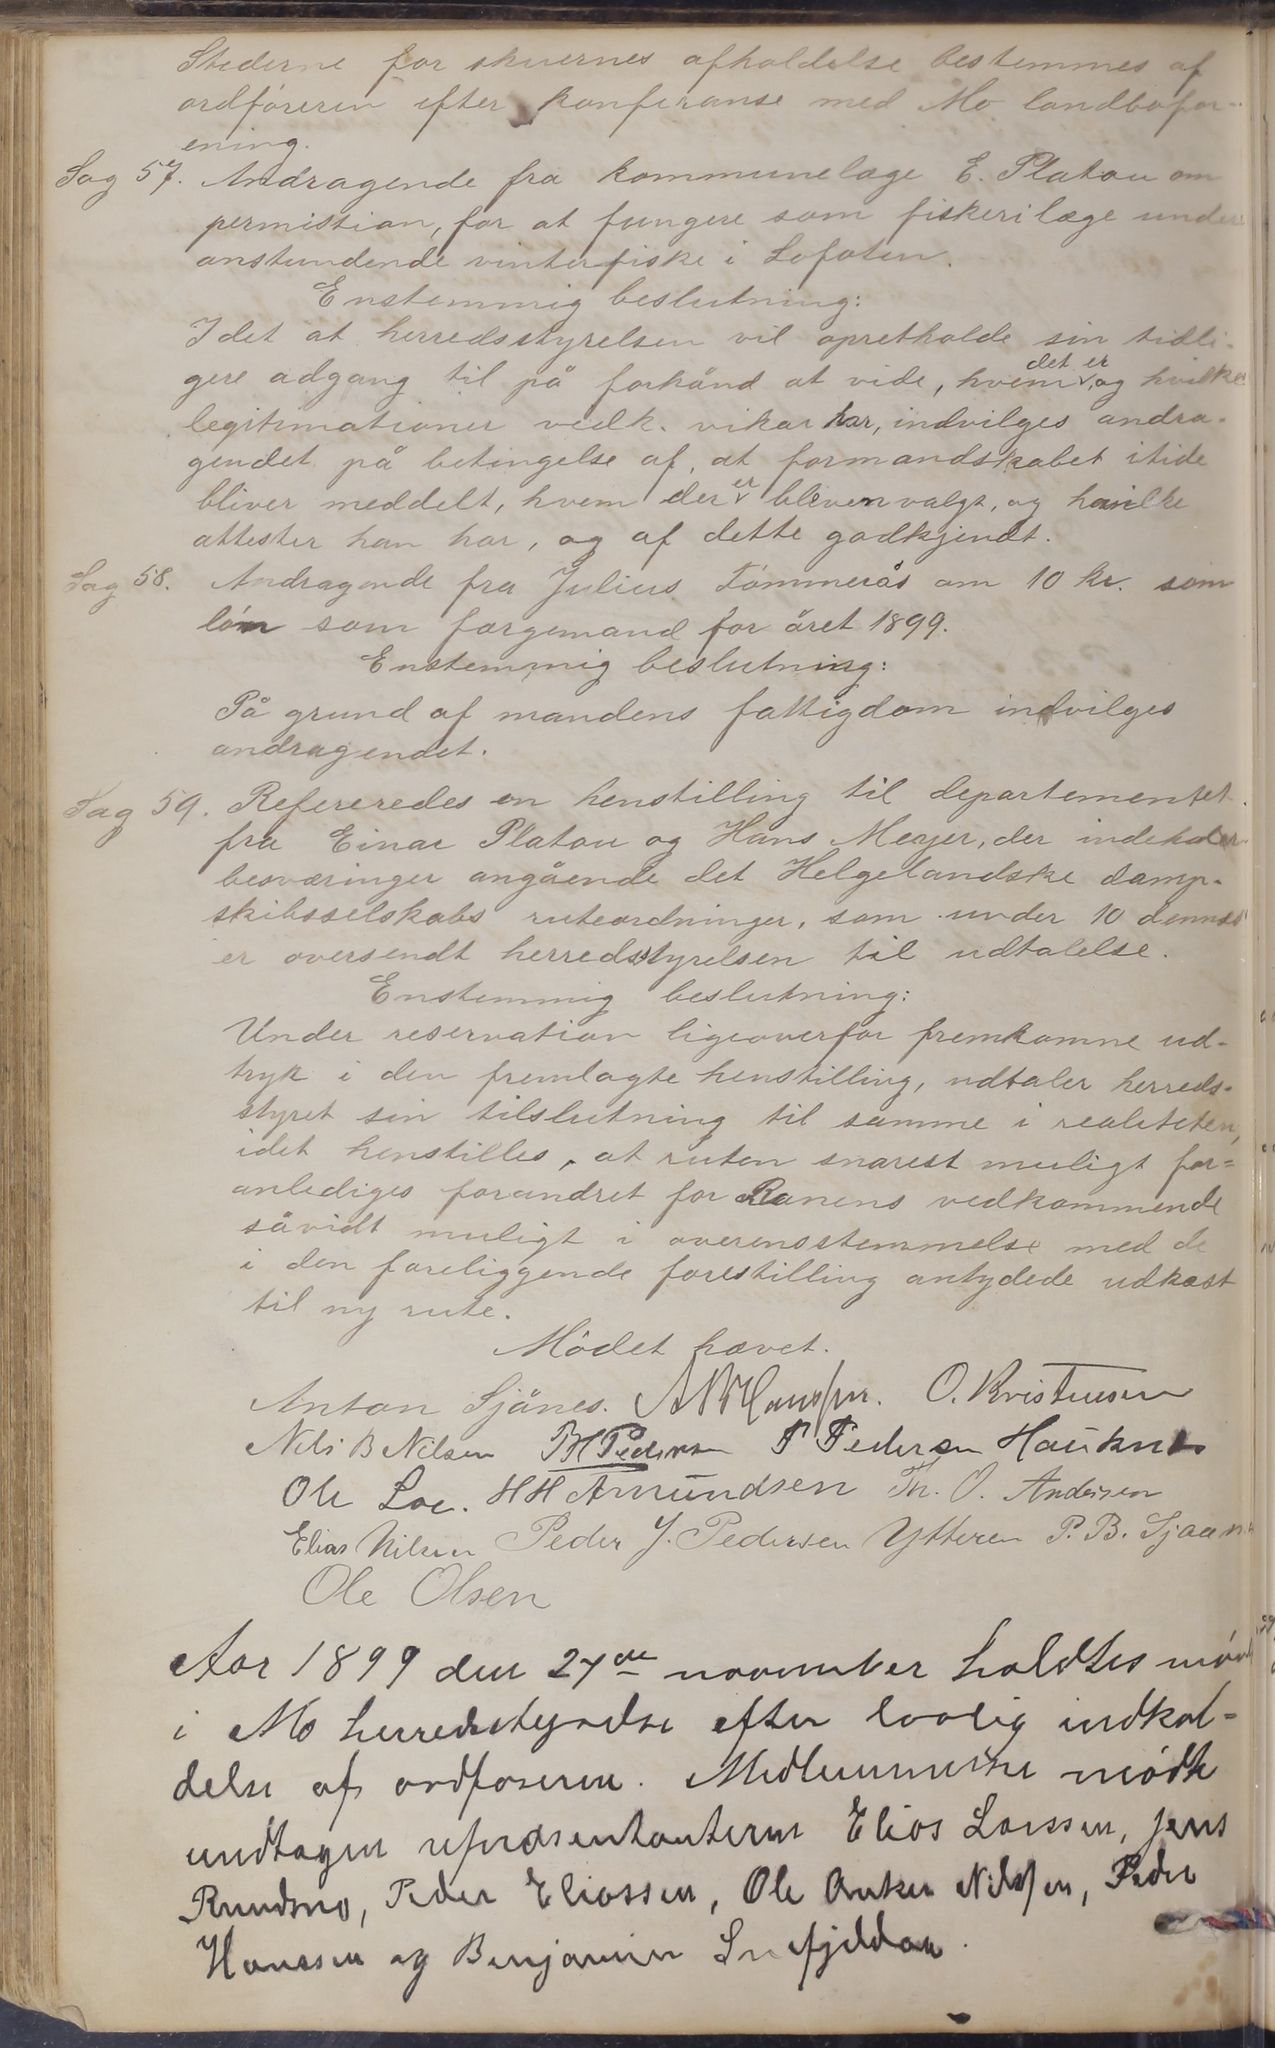 Stederne for skuernes afholdelse bestemmes af
ordföreren efter konferanse med Mo landbofor-
ening.
Sag 57. Andragende fra kommunelæge E. Platou om
permistian, for at fungere som fiskerilæge under
anstundende vinterfiske i Lofoten.
Enstemmig beslutning:
Idet at herredsstyrelsen vil opretholde sin tidli-
gere adgang til på forhånd at vide, hvem det er og hvilke
legitimationer vedk. vikar har, indvilges andra-
gendet på betingelse af, at formandskabet itide
bliver meddelt, hvem der er bleven valgt, og hvilke
attester han har, og af dette godkjendt.
Sag 58. Andragende fra Julius Tömmerås om 10 kr. som
lön som forgemand for året 1899.
Enstemmig beslutning:
På grund af mandens fattigdom indvilges
andragendet.
Sag 59. Refereredes en henstilling til departementet
fra Einar Platou og Hans Meyer, der indeholder
besværinger angående det Helgelandske damp-
skibsselskabs ruteordninger, som under 10 dennes
er oversendt herredsstyrelsen til udtalelse.
Enstemmig beslutning:
Under reservation ligeoverfor fremkomne ud-
tryk i den fremlagte henstilling, udtaler herreds-
styret sin tilslutning til samme i realiteten,
idet henstilles, at ruten snarest muligt for=
anlediges forandret for Ranens vedkommende
såvidt muligt i overensstemmelse med de
i den foreliggende forestilling antydede udkast
til ny rute.
Mödet hævet.
Anton Sjånes. O. Kristensen
Nils B Nilsen P H Pedersen P Pedersen Hauknes
Ole Loe. H H Amundsen Th. O. Andersen
Elias Nilsen Peder J. Pedersen Ytteren P. B. Sjaanes
Ole Olsen
Aar 1899 den 27de november holdtes möde
i Mo herredsstyrelse efter lovlig indkal-
delse af ordföreren. Medlemmerne mödte
undtagen repræsentanterne Elias Larssen, Jens
Rundmo, Peder Eliassen, Ole Anker Nilssen, Peder
Hanssen og Benjamin Snefjeldaa.